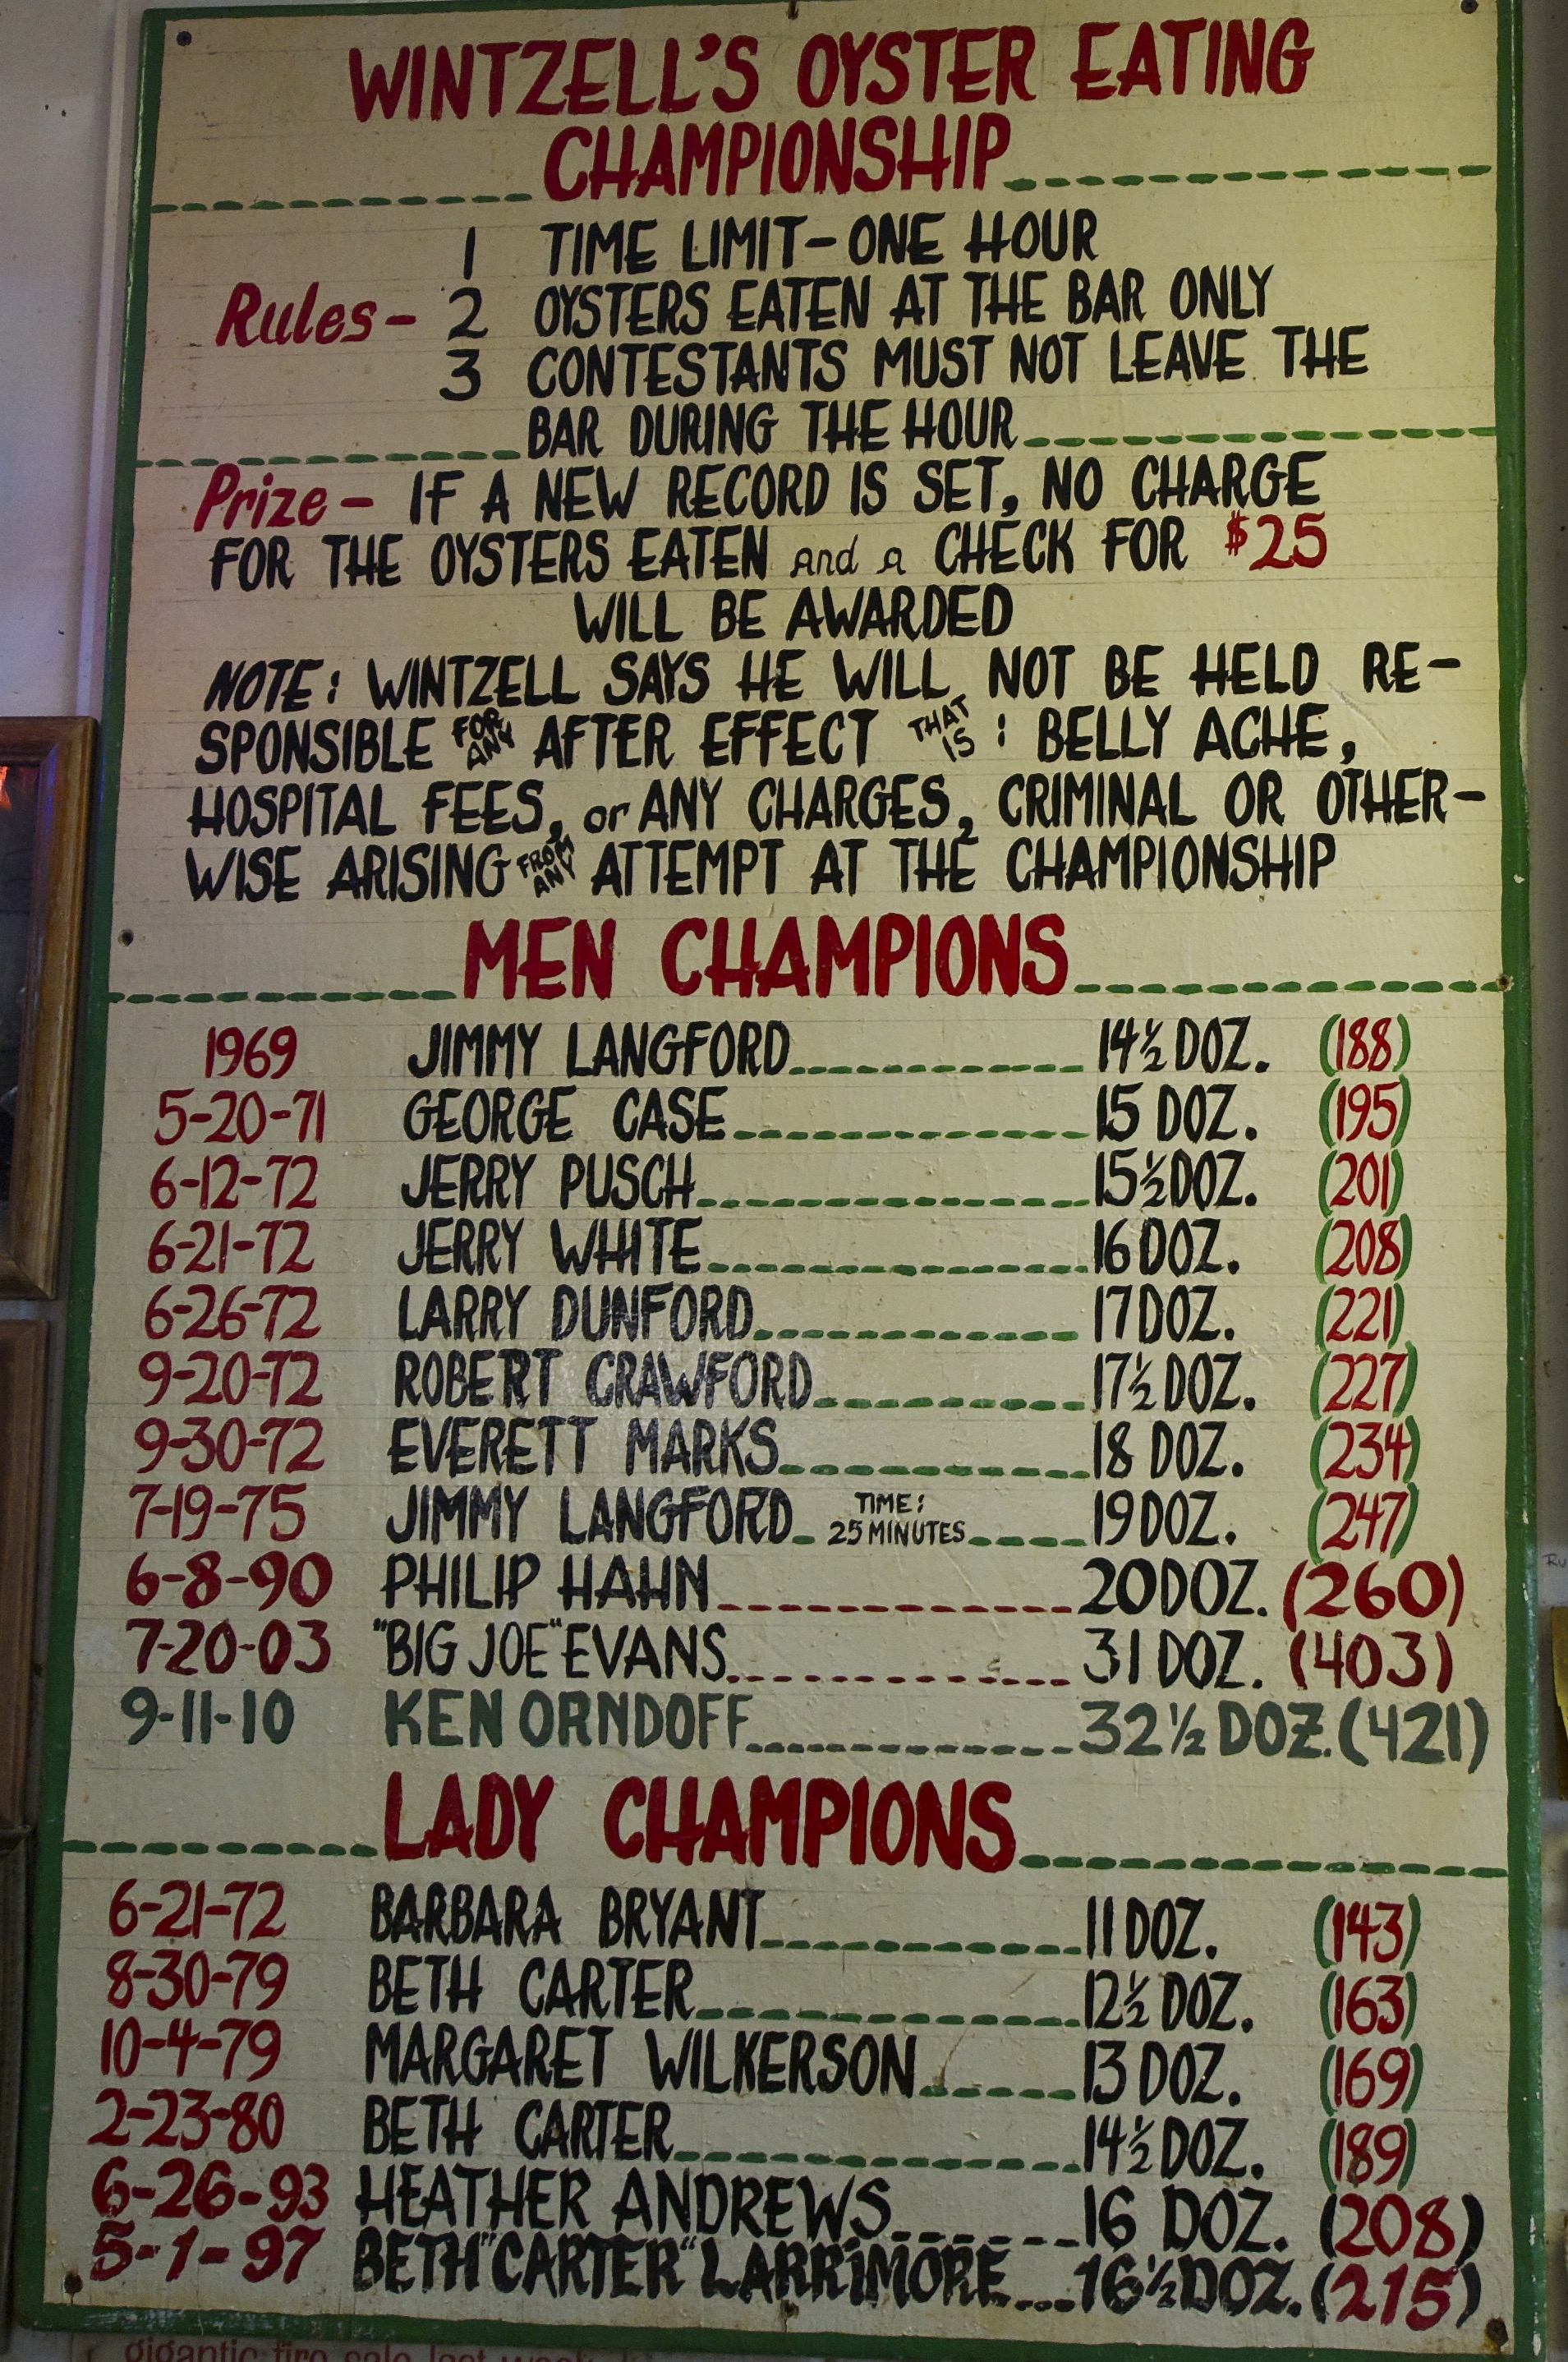 WINTZELL'S OYSTER EATING
CHAMPIONSHIP
1 TIME LIMIT-ONE HOUR
Rules- 2 OYSTERS EATEN AT THE BAR ONLY
3 CONTESTANTS MUST NOT LEAVE THE
BAR DURING THE HOUR
Prize- IF A NEW RECORD IS SET, NO CHARGE
FOR THE OYSTERS EATEN and a CHECK FOR $25
WILL BE AWARDED
NOTE: WINTZELL SAYS HE WILL NOT BE HELD RE-
SPONSIBLE FOR ANY AFTER EFFECT THAT IS: BELLY ACHE,
HOSPITAL FEES, or ANY CHARGES, CRIMINAL OR OTHER-
WISE ARISING FROM ANY ATTEMPT AT THE CHAMPIONSHIP
MEN CHAMPIONS
1969 JIMMY LANGFORD 14½ DOZ. (188)
5-20-71 GEORGE CASE 15 DOZ. (195)
6-12-72 JERRY PUSCH 15½ DOZ. (201)
6-21-72 JERRY WHITE 16 DOZ. (208)
6-26-72 LARRY DUNFORD 17 DOZ. (221)
9-20-72 ROBERT CRAWFORD 17½ DOZ. (227)
9-30-72 EVERETT MARKS 18 DOZ. (234)
7-19-75 JIMMY LANGFORD TIME: 25 MINUTES 19 DOZ. (247)
6-8-90 PHILIP HAHN 20 DOZ. (260)
7-20-03 "BIG JOE" EVANS 31 DOZ. (403)
9-11-10 KEN ORNDOFF 32½ DOZ. (421)
LADY CHAMPIONS
6-21-72 BARBARA BRYANT 11 DOZ. (143)
8-30-79 BETH CARTER 12½ DOZ. (163)
10-4-79 MARGARET WILKERSON 13 DOZ. (169)
2-23-80 BETH CARTER 14½ DOZ. (189)
6-26-93 HEATHER ANDREWS 16 DOZ. (208)
5-1-97 BETH "CARTER" LARRIMORE 16½ DOZ. (215)
gigantic fire sale last week